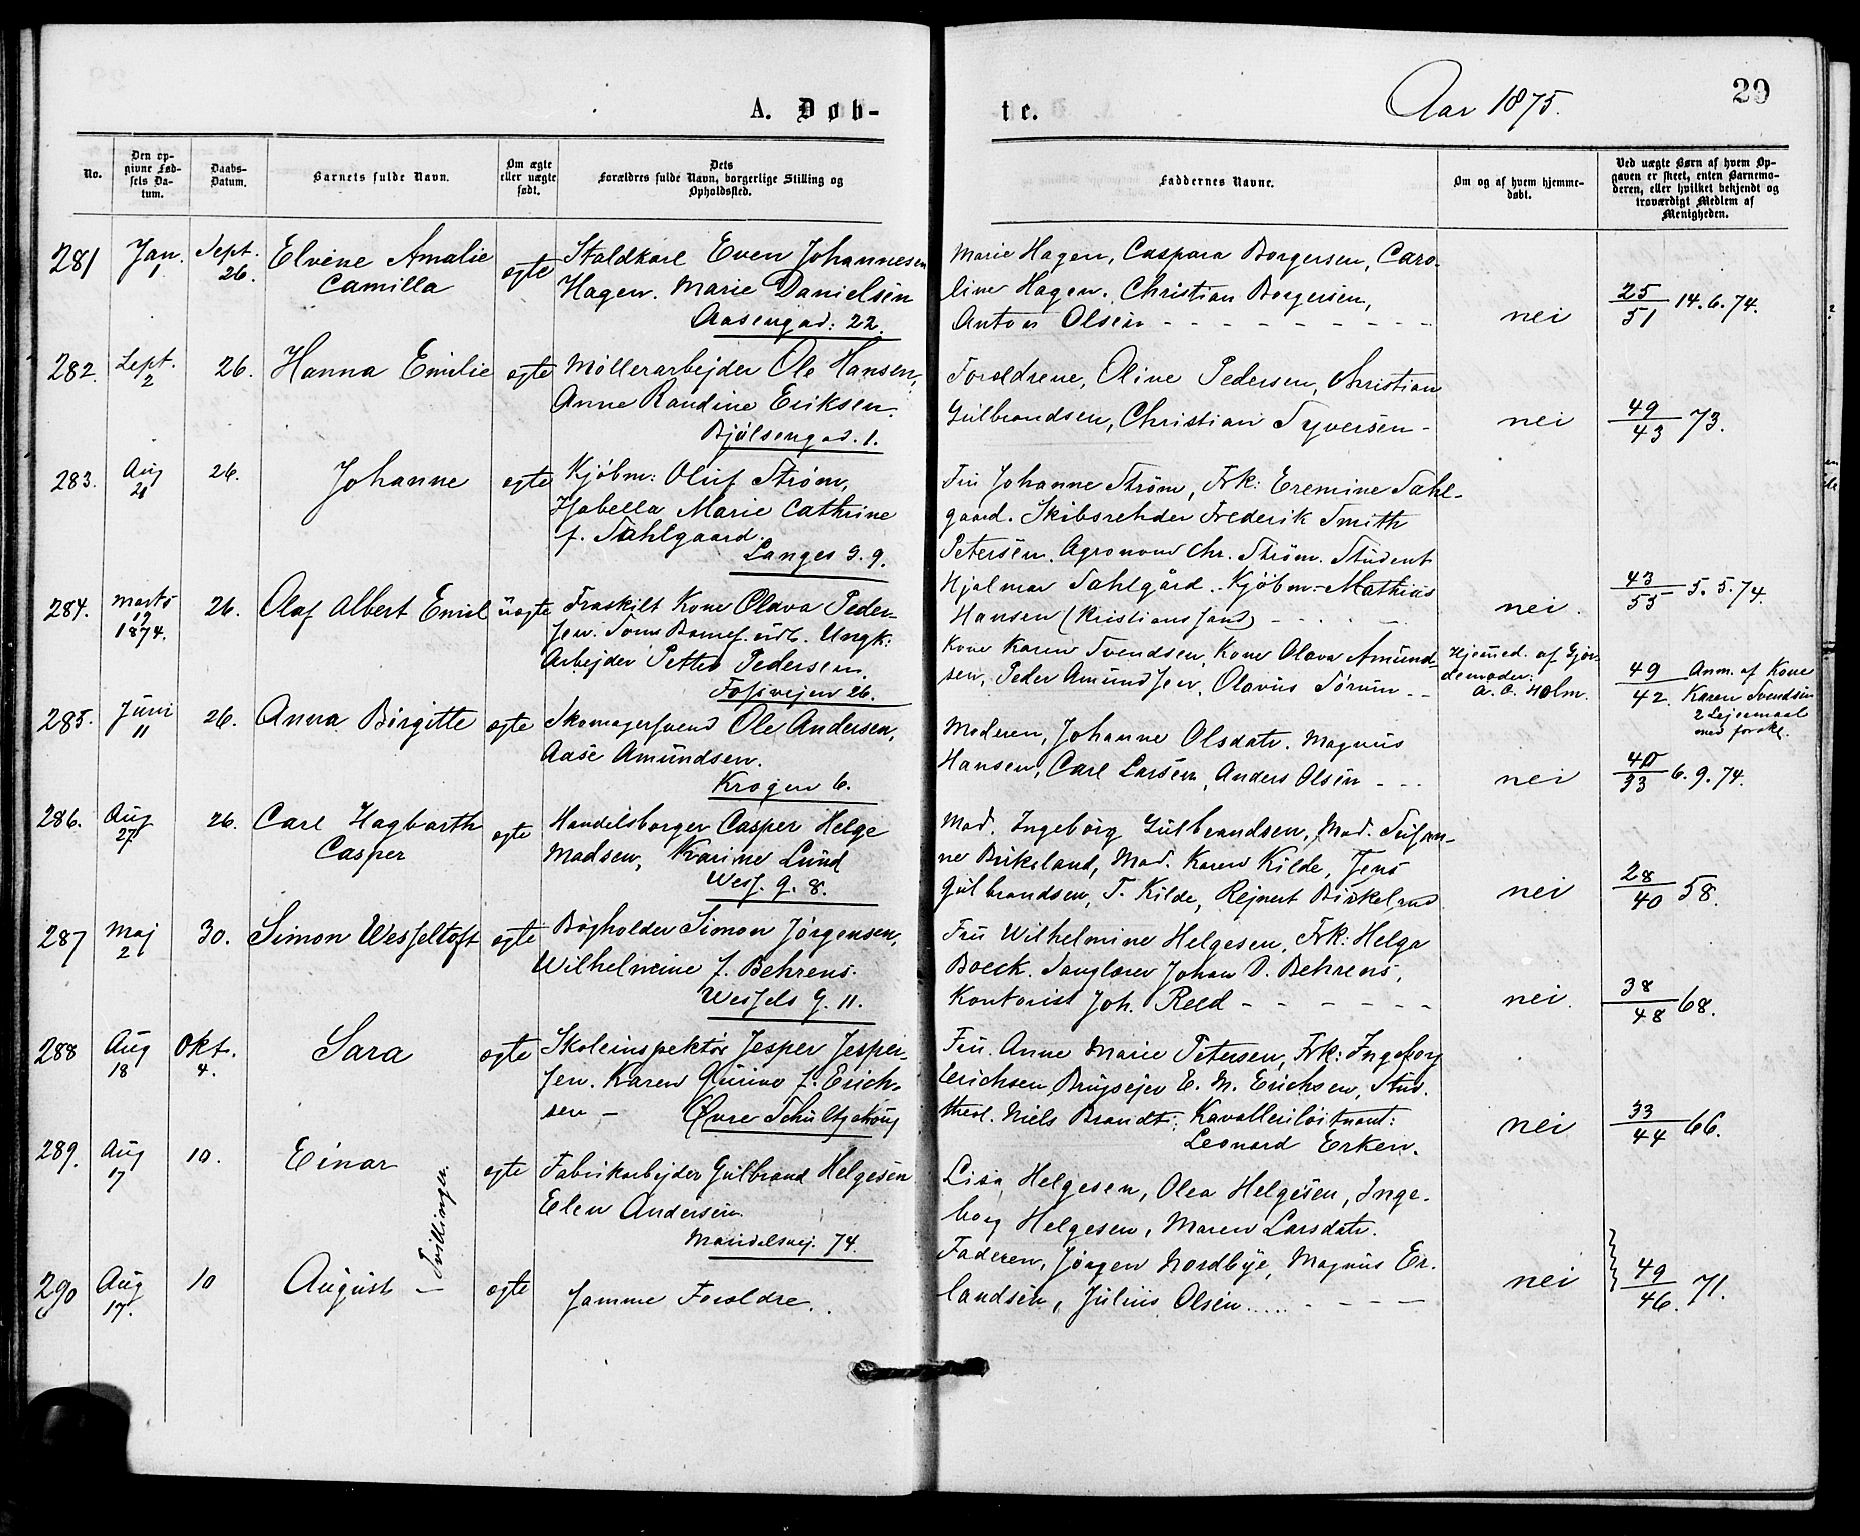 A. Døb-
te.
Aar 1875.
29
No.
Den op-
givne Fød-
sels Da-
tum.
Daabs-
Datum.
Barnets fulde Navn.
Om ægte
eller uægte
født.
Dets
Forældres fulde Navn, borgerlige Stilling og
Opholdssted.
Faddernes Navne.
Om og af hvem hjemme-
døbt.
Ved uægte Børn af hvem Op-
gaven er skeet, enten Barnemo-
deren, eller hvilket bekjendt og
troværdigt Medlem af
Menigheden.
281 Jan. 1 Sept. 26. Elvine Amalie
Camilla
ægte
Staldkarl Even Johannesen
Hagen. Marie Danielsen
Aasengad: 22.
Marie Hagen, Caspara Borgersen, Caro-
line Hagen. Christian Borgersen,
Anton Olsen - - - - - - - - -
nei
25/51 14.6.74.
282. Sept. 2 26. Hanna Emilie ægte
Møllerarbejder Ole Hansen,
Anne Randine Eriksen.
Bjølsengad. 1.
Forældrene, Oline Pedersen, Christian
Gulbrandsen, Christian Syversen -
nei
49/43 73.
283. Aug 21 26. Johanne ægte
Kjøbm: Oluf Strøm,
Isabella Marie Cathrine
f. Dahlgaard.
Langes G. 9.
Fru Johanne Strøm, Frk: Eremine Dahl-
gaard. Skibsrehder Frederik Smith
Petersen. Agronom Chr. Strøm. Student
Hjalmar Dahlgård. Kjøbm. Mathias
Hansen (Kristianssand) - - - -
nei.
43/55 5.5.74.
284. Marts 19 1874. 26. Olaf Albert Emil uægte
Fraskilt Kone Olava Peder-
sen. Som Barnef. udl. Ungk:
Arbejder Petter Pedersen.
Fossvejen 26.
Kone Karen Svendsen, Kone Olava Amund-
sen, Peder Amundsen, Olavus Sørum - -
Hjemmed. af Gjor-
demoder:
A. C. Holm.
49/42. Anm. af Kone
Karen Svendsen
2 Lejermaal
med forskj.
285. Juni 11 26. Anna Birgitte ægte
Skomagersvend Ole Andersen,
Aase Amundsen.
Krogen 6.
Moderen, Johanne Olsdatr. Magnus
Hansen, Carl Larsen, Anders Olsen - - -
nei
40/33 6.9.74.
286. Aug 27 26. Carl Hagbarth
Casper
ægte
Handelsborger Casper Helge
Madsen, Karine Lund
Wess. G. 8.
Mad. Ingeborg Gulbrandsen, Mad. Susan-
ne Birkeland, Mad. Karen Kilde, Jens
Gulbrandsen, T. Kilde, Rejnert Birkeland
nei
28/40 58.
287 Maj 2 30. Simon Wesseltoft ægte
Bogholder Simon Jørgensen,
Wilhelmine f. Behrens.
Wessels G. 11.
Fru Wilhelmine Helgesen, Frk: Helga
Boeck. Sanglærer Johan D. Behrens,
Kontorist Joh. Reed - - - - - -
nei.
38/48 68.
288 Aug 18 Okt. 4. Sara ægte
Skoleinspektør Jesper Jesper-
sen. Karen Gurine f. Erich-
sen -
Fru. Anne Marie Petersen, Frk: Ingeborg
Erichsen, Brugsejer E. N. Erichsen, Stud.
theol. Niels Brandt. Kavallerilöitnant:
Leonard Erken.
nei
33/44 66.
289. Aug 17 10. Einar ægte
Fabrikarbejder Gulbrand Helgesen
Elen Andersen.
Maridalsvej. 74.
Lisa Helgesen, Olea Helgesen, Inge-
borg Helgesen, Maren Larsdatr.
Tvillinger.
290 Aug 17. 10 August - ægte
samme Forældre.
Faderen, Jørgen Nordbye, Magnus Er-
landsen, Julius Olsen - - - -
nei
49/46. 71.